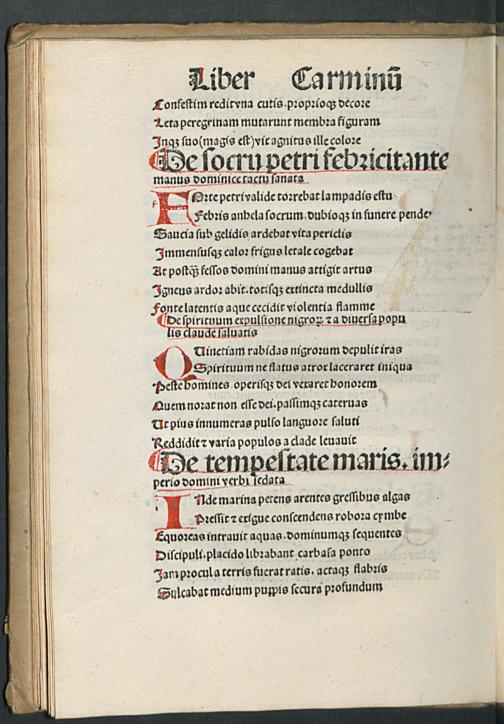 Liber Carminū
Confestim redit vna cutis. proprioqꝫ decore
Leta peregrinam mutarunt membra figuram
Inqꝫ suo (magis est) vix agnitus ille colore
De socru petri febricitante
manus dominice tactu sanata
FOrte petri valide torrebat lampadis estu
Febris anhela socrum. dubioqꝫ in funere pende
Saucia sub gelidis ardebat vita periclis
Immensusqꝫ calor frigus letale cogebat
At postqꝫ̄ fessos domini manus attigit artus
Igneus ardor abit. totisqꝫ extincta medullis
Fonte latentis aque cecidit violentia flamme
De spirituum expulsione nigroꝝ ⁊ a diuersa popu
lis claude saluatis
QUinetiam rabidas nigrorum depulit iras
Spirituum ne flatus atrox laceraret iniqua
Peste homines operisqꝫ dei vexaret honorem
Quem norat non esse dei. passimqꝫ cateruas
Ut pius innumeras pulso languore saluti
Reddidit ⁊ varia populos a clade leuauit
De tempestate maris. im⸗
perio domini verbi sedata
INde marina petens arentes gressibus algas
Pressit ⁊ exigue conscendens robora cymbe
Equoreas intrauit aquas. dominumqꝫ sequentes
Discipuli. placido librabant carbasa ponto
Jam procul a terris fuerat ratis. actaqꝫ flabris
Sulcabat medium puppis secura profundum